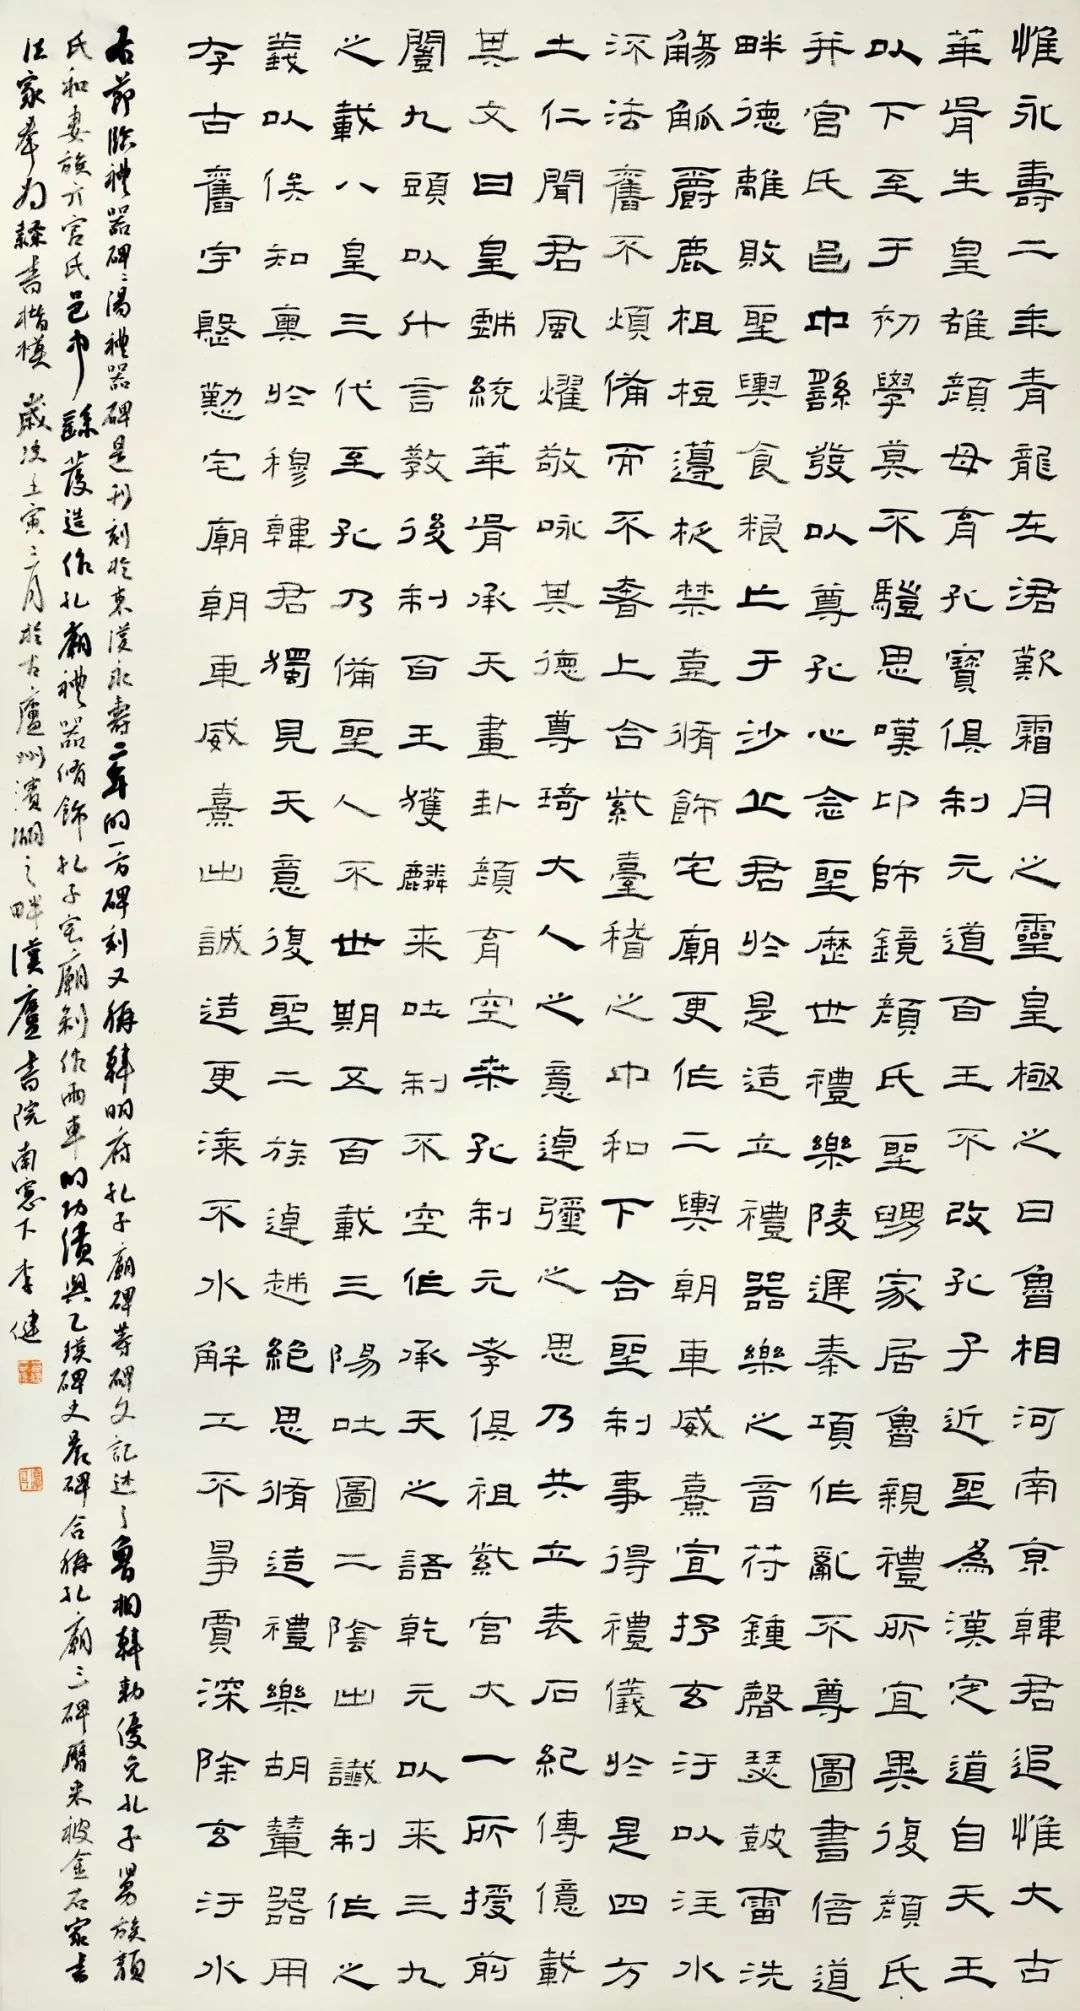 惟永壽二年青龍在涒歎霜月之靈皇極之日魯相河南京韓君追惟大古
華胥生皇雄顏母育孔寶俱制元道百王不改孔子近聖為漢定道自天王
以下至于初學莫不驥思嘆卬師鏡顏氏聖舅家居魯親禮所宜異復顏氏
并官氏邑中繇發以尊孔心念聖歷世禮樂陵遲秦項作亂不尊圖書倍道
畔德離敗聖輿食糧亡于沙丘君於是造立禮器樂之音符鍾磬瑟鼓雷洗
觴觚爵鹿柤梪籩柉禁壺脩飾宅廟更作二輿朝車威熹宣抒玄汙以注水
沝法舊不煩備而不奢上合紫臺稽之中和下合聖制事得禮儀於是四方
土仁聞君風燿敬咏其德尊琦大人之意逴彌之思乃共立表石紀傳億載
其文曰皇戲統華胥承天畫卦顏育空桑孔制元孝俱祖紫宮大一所授前
闓九頭以什言教後制百王獲麟來吐制不空作承天之語乾元以來三九
之載八皇三代至孔乃備聖人不世期五百載三陽吐圖二陰出讖制作之
義以俟知奧於穆韓君獨見天意復聖二族逴越絕思脩造禮樂胡輦器用
存古舊宇慇懃宅廟朝車威熹出誠造更漆不水解工不爭賈深除玄汙水
右節臨禮器碑漢禮器碑是刊刻於東漢永壽二年的一方碑刻又稱韓明府孔子廟碑等碑文記述了魯相韓敕優免孔子舅族顏
氏和妻族亓官氏邑中繇發造作孔廟禮器脩飾孔子宅廟制作兩車的功績與乙瑛碑史晨碑合稱孔廟三碑曆來被金石家書
法家奉為隸書楷模 歲次壬寅二月於古廬州濱湖之畔漢廬書院南窗下李健